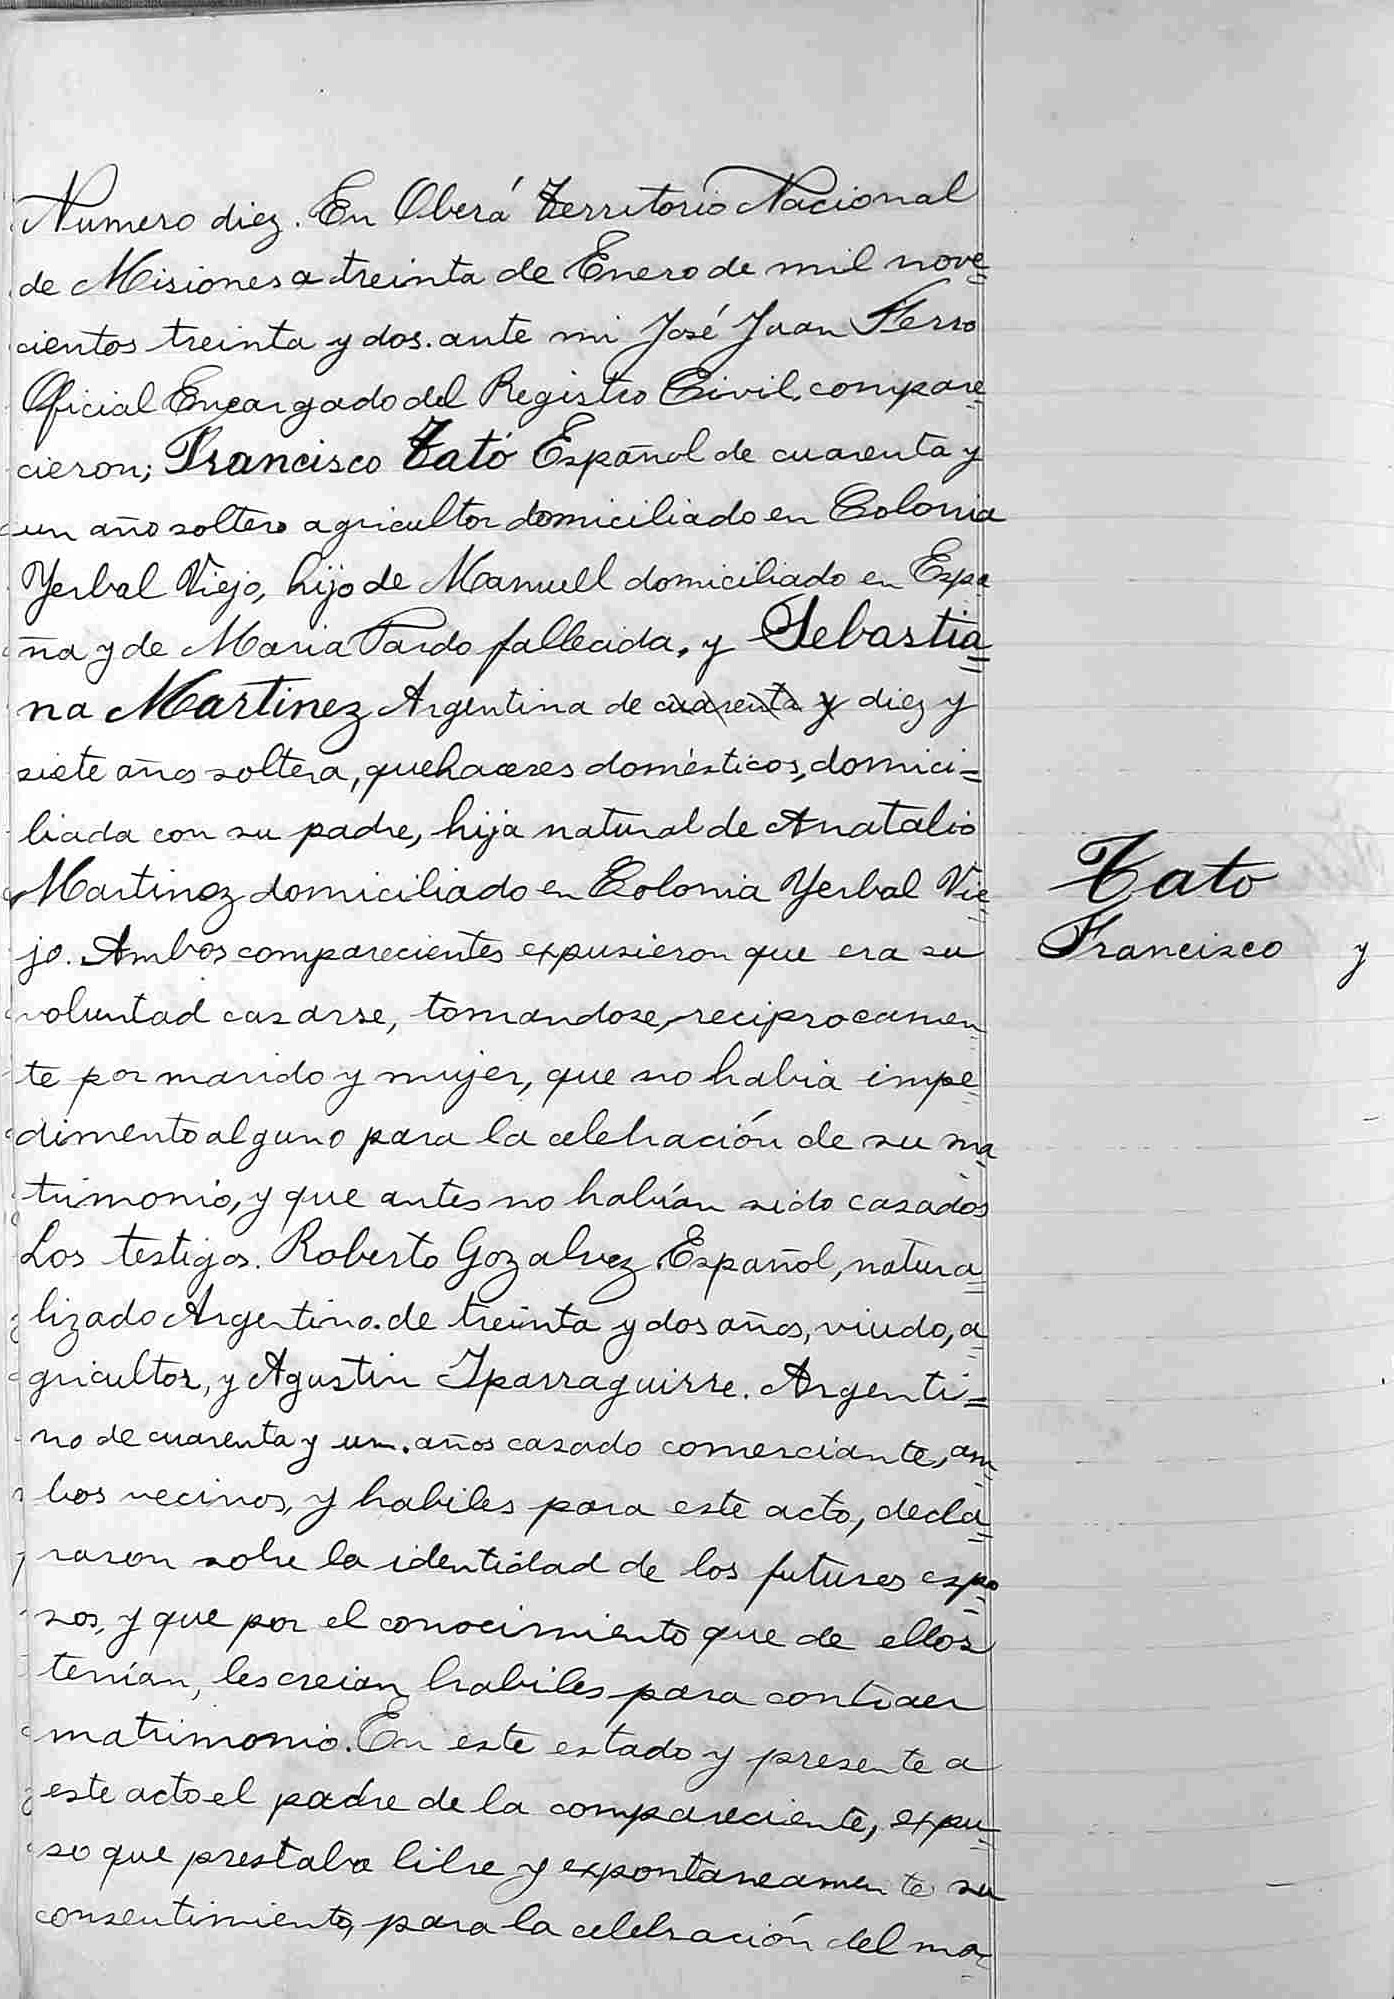 Numero diez. En Oberá Territorio Nacional
de Misiones a treinta de Enero de mil nove=
cientos treinta y dos. ante mi José Juan Ferro
Oficial Encargado del Registro Civil, compare=
cieron; Francisco Tató Español de cuarenta y
un año soltero agricultor domiciliado en Colonia
Yerbal Viejo, hijo de Manuell domiciliado en Espa=
ña y de Maria Pardo fallecida, y Sebastia=
na Martinez Argentina de cuarenta y diez y
siete años soltera, quehaceres domésticos, domici=
liada con su padre, hija natural de Anatalio
Martinez domiciliado en Colonia Yerbal Vie=
jo. Ambos comparecientes expusieron que era su
voluntad casarse, tomandose, reciprocamen=
te por marido y mujer, que no habia impe=
dimento alguno para la celebración de su ma=
trimonio, y que antes no habían sido casados
Los testigos. Roberto Gozalvez Español, natura=
lizado Argentino. de treinta y dos años, viudo, a=
gricultor, y Agustin Iparraguirre. Argenti=
no de cuarenta y un. años casado comerciante, am=
bos vecinos, y habiles para este acto, decla=
raron sobre la identidad de los futuros espo=
sos, y que por el conocimiento que de ellos
tenían, les creian habiles para contraer
matrimonio. En este estado y presente a
este acto el padre de la compareciente, expu=
so que prestaba libre y expontaneamente su
consentimiento, para la celebración del ma=
Tato
Francisco y